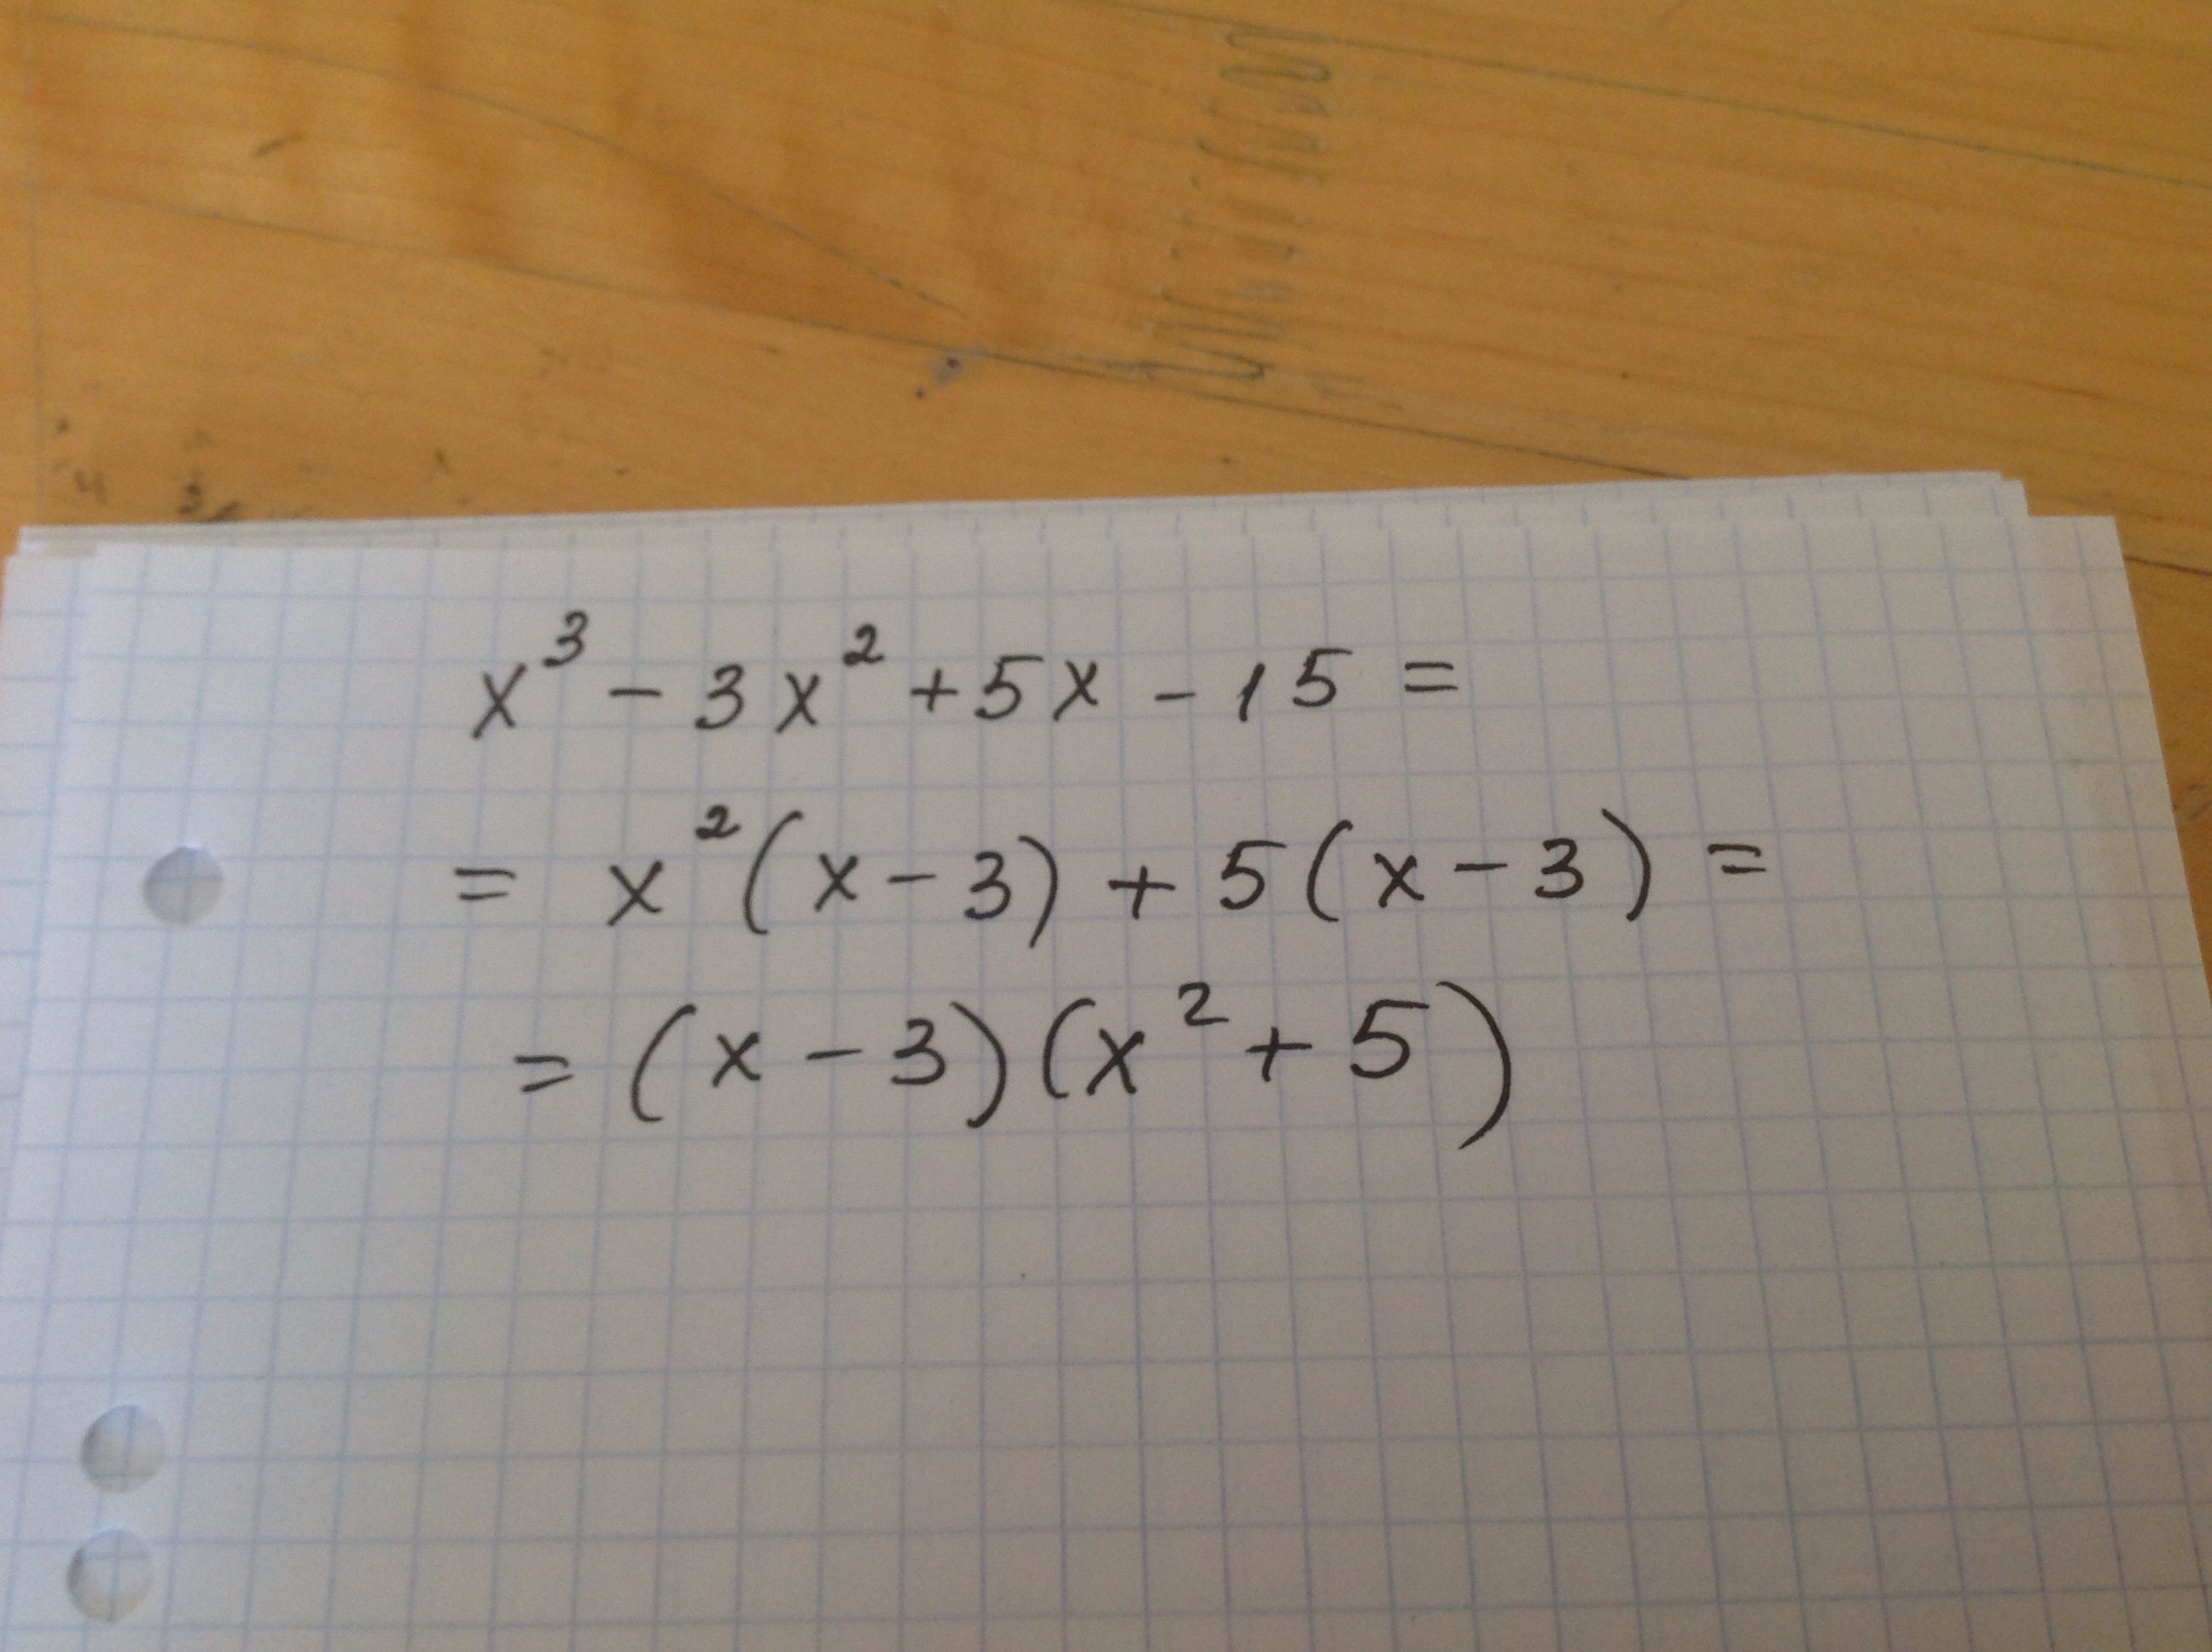 x³ - 3x² + 5x - 15 =
= x² (x - 3) + 5 (x - 3) =
= (x - 3) (x² + 5)